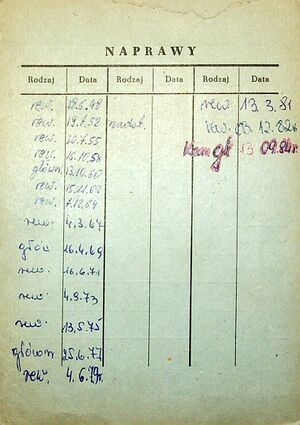 NAPRAWY
Rodzaj Data Rodzaj Data Rodzaj Data
rew. 18.6.48 rew. 13.3.81
rew. 19.7.52 rew. 03.12.82r
rew. 20.7.55 gł 13 09.84r
rew. 16.10.58
główn. 13.10.60
rew. 15.11.62
rew. 7.12.64
rew. 4.3.67
głów 16.4.69
rew. 16.6.71
rew. 4.9.73
rew. 13.5.75
główn 25.6.77
rew. 4.6.79r.